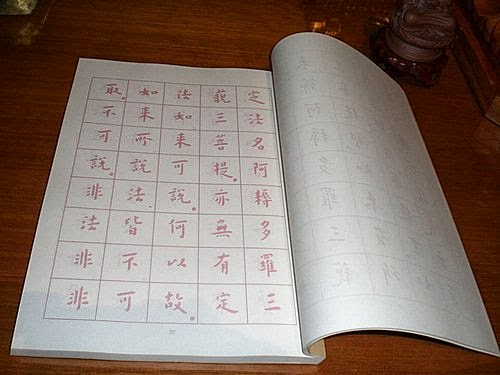 定法名阿耨多羅三
藐三菩提。亦無有定
法如來可說。何以故。
如來所說法、皆不可
取。不可說。非法非非